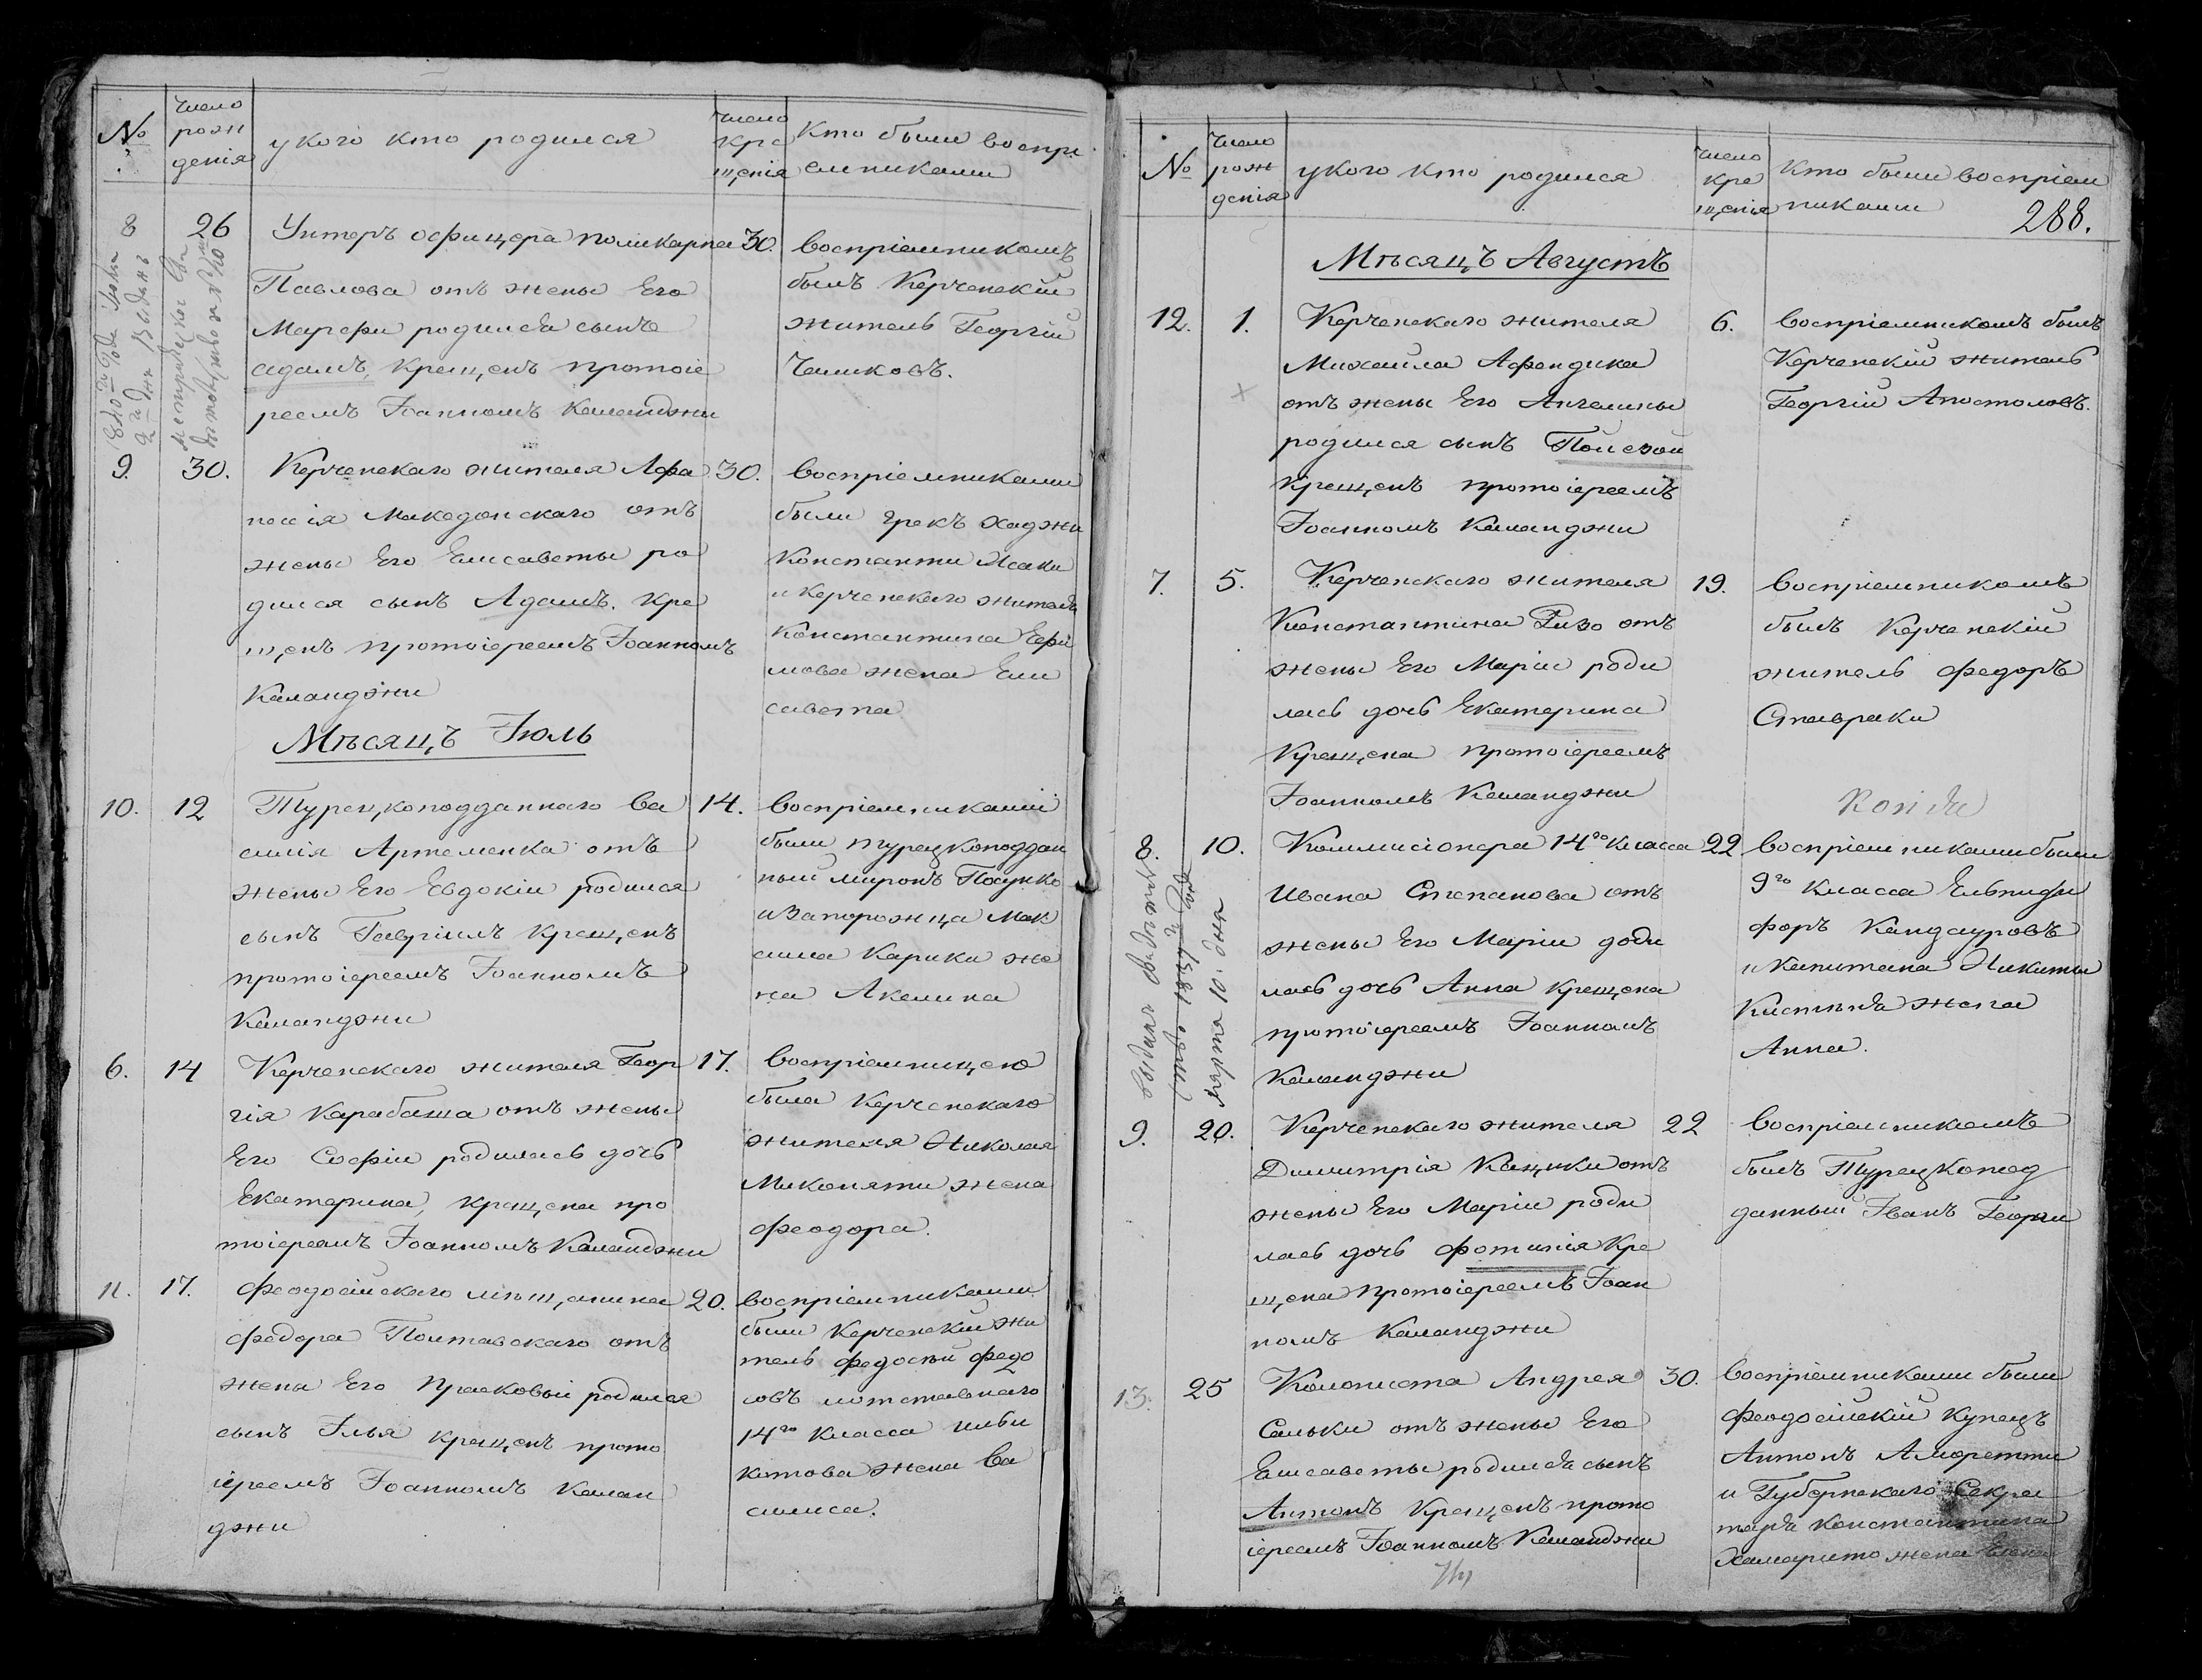 №
число
рож
денія
у кого кто родился
число
кре
щенія
кто были воспрі
емниками
8
26
Унтеръ офицера поликарпа
Павлова отъ жены Его
Марфы родился сынъ
адамъ, крещенъ протоіе
реемъ Іоанномъ Каланджи
30.
воспріемникомъ
былъ Керченскій
житель Георгій
Чаликовъ.
9.
30.
Керченскаго жителя Афа
насія Македонскаго отъ
жены Его Елисаветы ро
дился сынъ Адамъ. кре
щенъ протоіереемъ Іоанномъ
Каланджи
30.
воспріемниками
были грекъ хаджи
Константи
и Керченскаго жителя
Константина Ефи
мова жена Ели
савета
Мѣсяцъ Іюль
10.
12
Турецкоподданнаго ва
силія Артеменка отъ
жены Его Евдокіи родился
сынъ Гавріилъ крещенъ
протоіереемъ Іоанномъ
Каланджи
14.
воспріемниками
были турецкоподдан
ный миронъ
и Запорожца Мак
сима Карики же
на Акилина
6.
14
Керченскаго жителя Геор
гія Карабаша отъ жены
Его Софіи родилась дочь
Екатерина, крещена про
тоіереемъ Іоанномъ Каланджи
17.
воспріемницею
была Керченскаго
жителя Николая
Миконяти жена
феодора.
11.
17.
Феодосійскаго мѣщанина
федора Полтавскаго отъ
жены Его Прасковьи родился
сынъ Илья крещенъ прото
іереемъ Іоанномъ Калан
джи
20.
воспріемниками
были Керченскій жи
тель федосій федо
совъ и отставнаго
14го класса
жена Ва
силиса.
№
число
рож
денія
у кого кто родился
число
кре
щенія
кто были воспріем
никами
288.
Мѣсяцъ Августъ
12.
1.
Керченскаго жителя
Михаила Афендика
отъ жены Его Ангелины
родился сынъ
крещенъ протоіереемъ
Іоанномъ Каланджи
6.
воспріемникомъ былъ
Керченскій житель
Георгій Апостоловъ.
7.
5.
Керченскаго жителя
Константина Ризо отъ
жены Его Маріи роди
лась дочь Екатерина
крещена протоіереемъ
Іоанномъ Каланджи
19.
воспріемникомъ
былъ Керченскій
житель федоръ
Ставраки
8.
10.
Коммисіонера 14го класса
Ивана Степанова отъ
жены Его Маріи роди
лась дочь Анна крещена
протоіереемъ Іоанномъ
Каланджи
22
воспріемниками были
9го класса Ельпиди
форъ Кандауровъ
и Капитана Никиты
жена
Анна.
выданъ
1837 года
марта 10. дня
9.
20.
Керченскаго жителя
Димитрія Кацики отъ
жены Его Маріи роди
лась дочь фотинія кре
щена протоіереемъ Іоан
номъ Каланджи
22
воспріемникомъ
былъ Турецкопод
данный Іванъ Георги
13.
25
Колониста Андрея
Сальки отъ жены Его
Елисаветы родился сынъ
Антонъ крещенъ прото
іереемъ Іоанномъ Каланджи
30.
воспріемниками были
феодосійскій купецъ
Антонъ Аморетти
и Губернскаго Секре
таря Константина
жена Елена